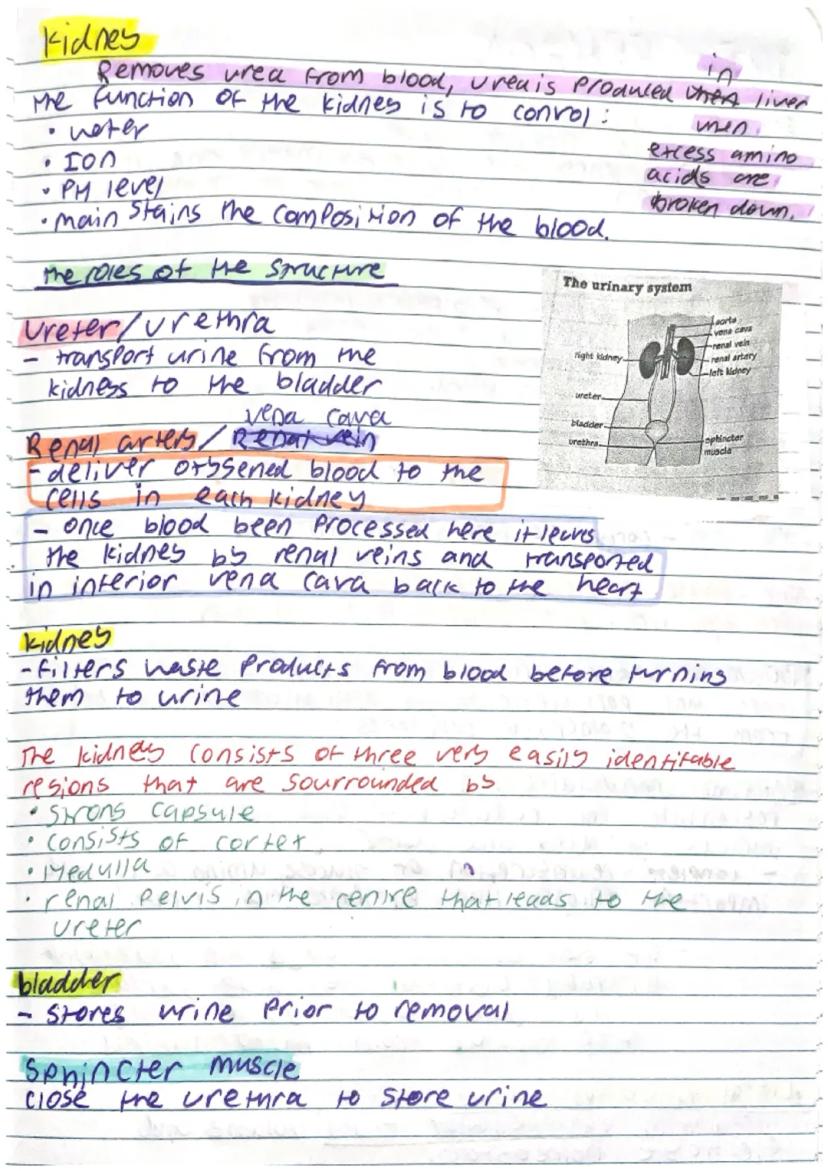 Kidney
Removes urea from blood, urea is produced in liver
when
excess amino
acids are
broken down.
The function of the kidney is to control:
• water
• ION
• PH level
• main stains the composition of the blood.
The roles of the structure
Ureter/urethra
- transport urine from the
kidneys to the bladder
vena cava
Renal artery / Renal vein
- deliver oxygened blood to the
cells in each kidney
- once blood been processed here it leaves
the kidney by renal veins and transported
in interior vena cava back to the heart
The urinary system
aorta
vena cava
renal vein
right kidney
renal artery
left kidney
ureter
bladder
urethra
sphincter
muscle
kidney
- filters waste products from blood before turning
them to urine
The kidney consists of three very easily identifable
regions that are sourrounded by
• Strong capsule
• consists of cortex
• Medulla
• renal Pelvis in the centre that leads to the
ureter
bladder
- Stores urine Prior to removal
Sphincter muscle
close the urethra to store urine